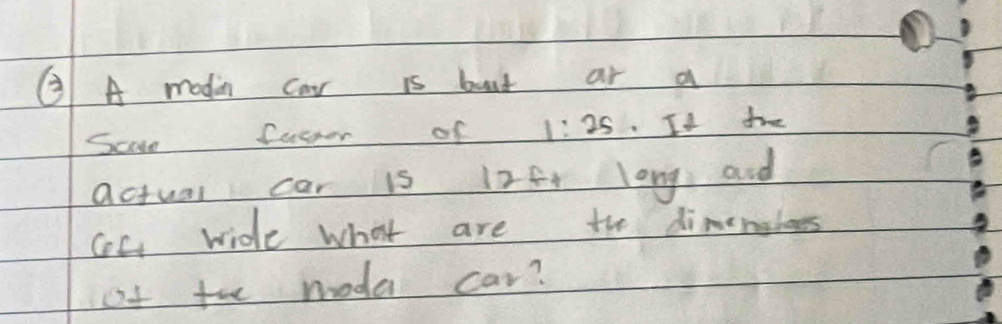 ③ A model car is built at a
Scale factor of 1:25. If the
actual car is 12ft long and
6ft wide what are the dimensions
of the model car?